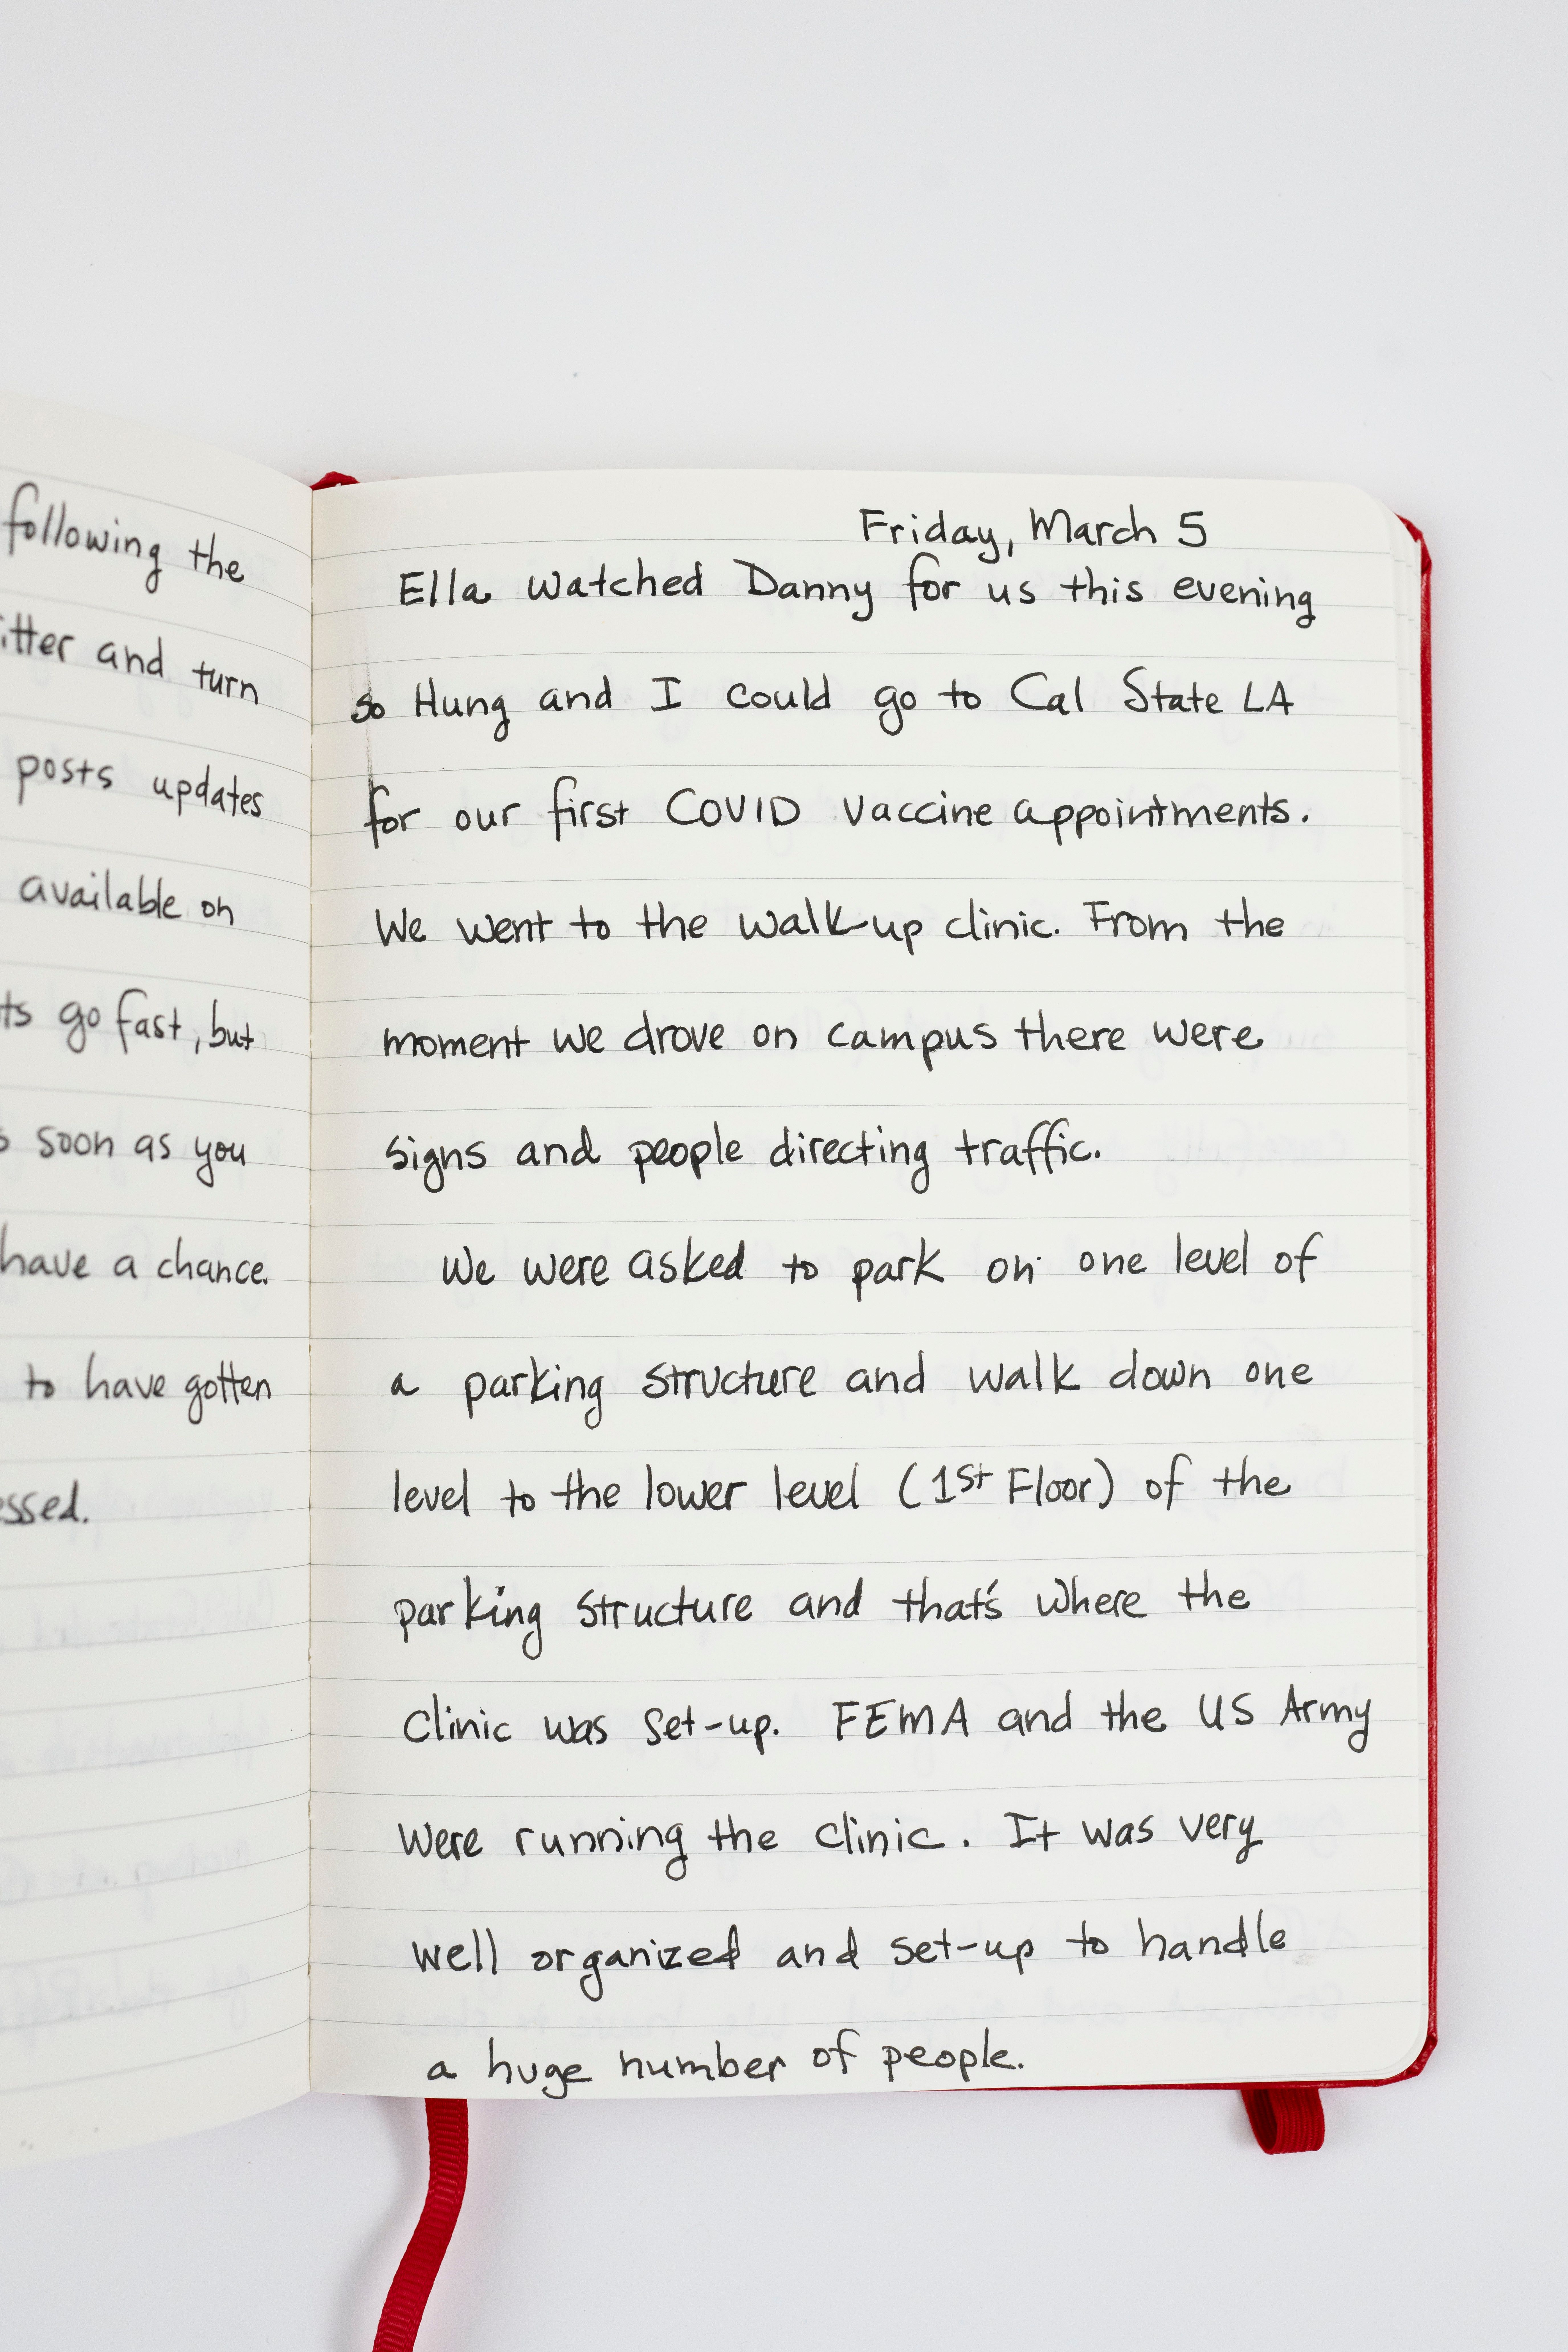 following the
itter and turn
posts updates
available on
ts go fast, but
soon as you
have a chance.
to have gotten
essed.
Friday, March 5
Ella watched Danny for us this evening
so Hung and I could go to Cal State LA
for our first COVID vaccine appointments.
We went to the walk-up clinic. From the
moment we drove on campus there were
signs and people directing traffic.
We were asked to park on one level of
a parking structure and walk down one
level to the lower level (1st Floor) of the
parking structure and that's where the
clinic was set-up. FEMA and the US Army
were running the clinic. It was very
well organized and set-up to handle
a huge number of people.